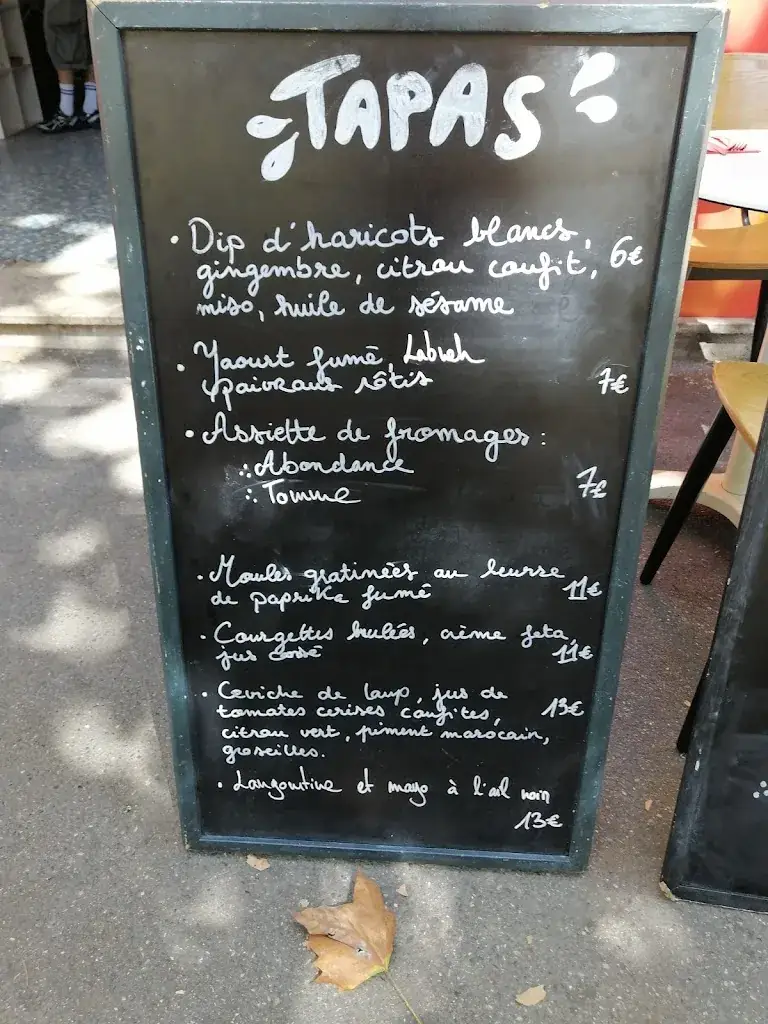 TAPAS
• Dip d'haricots blancs, 6€
gingembre, citron confit,
miso, huile de sésame
• Yaourt fumé, Labneh
poivrons rôtis 7€
• Assiette de fromages :
Abondance
Tomme 7€
• Moules gratinées au beurre
de paprika fumé 11€
• Courgettes brulées, crème feta,
jus corsé 11€
• Ceviche de loup, jus de
tomates cerises confites, 13€
citron vert, piment marocain,
groseilles.
• Langoustine et mayo à l'ail noir
13€